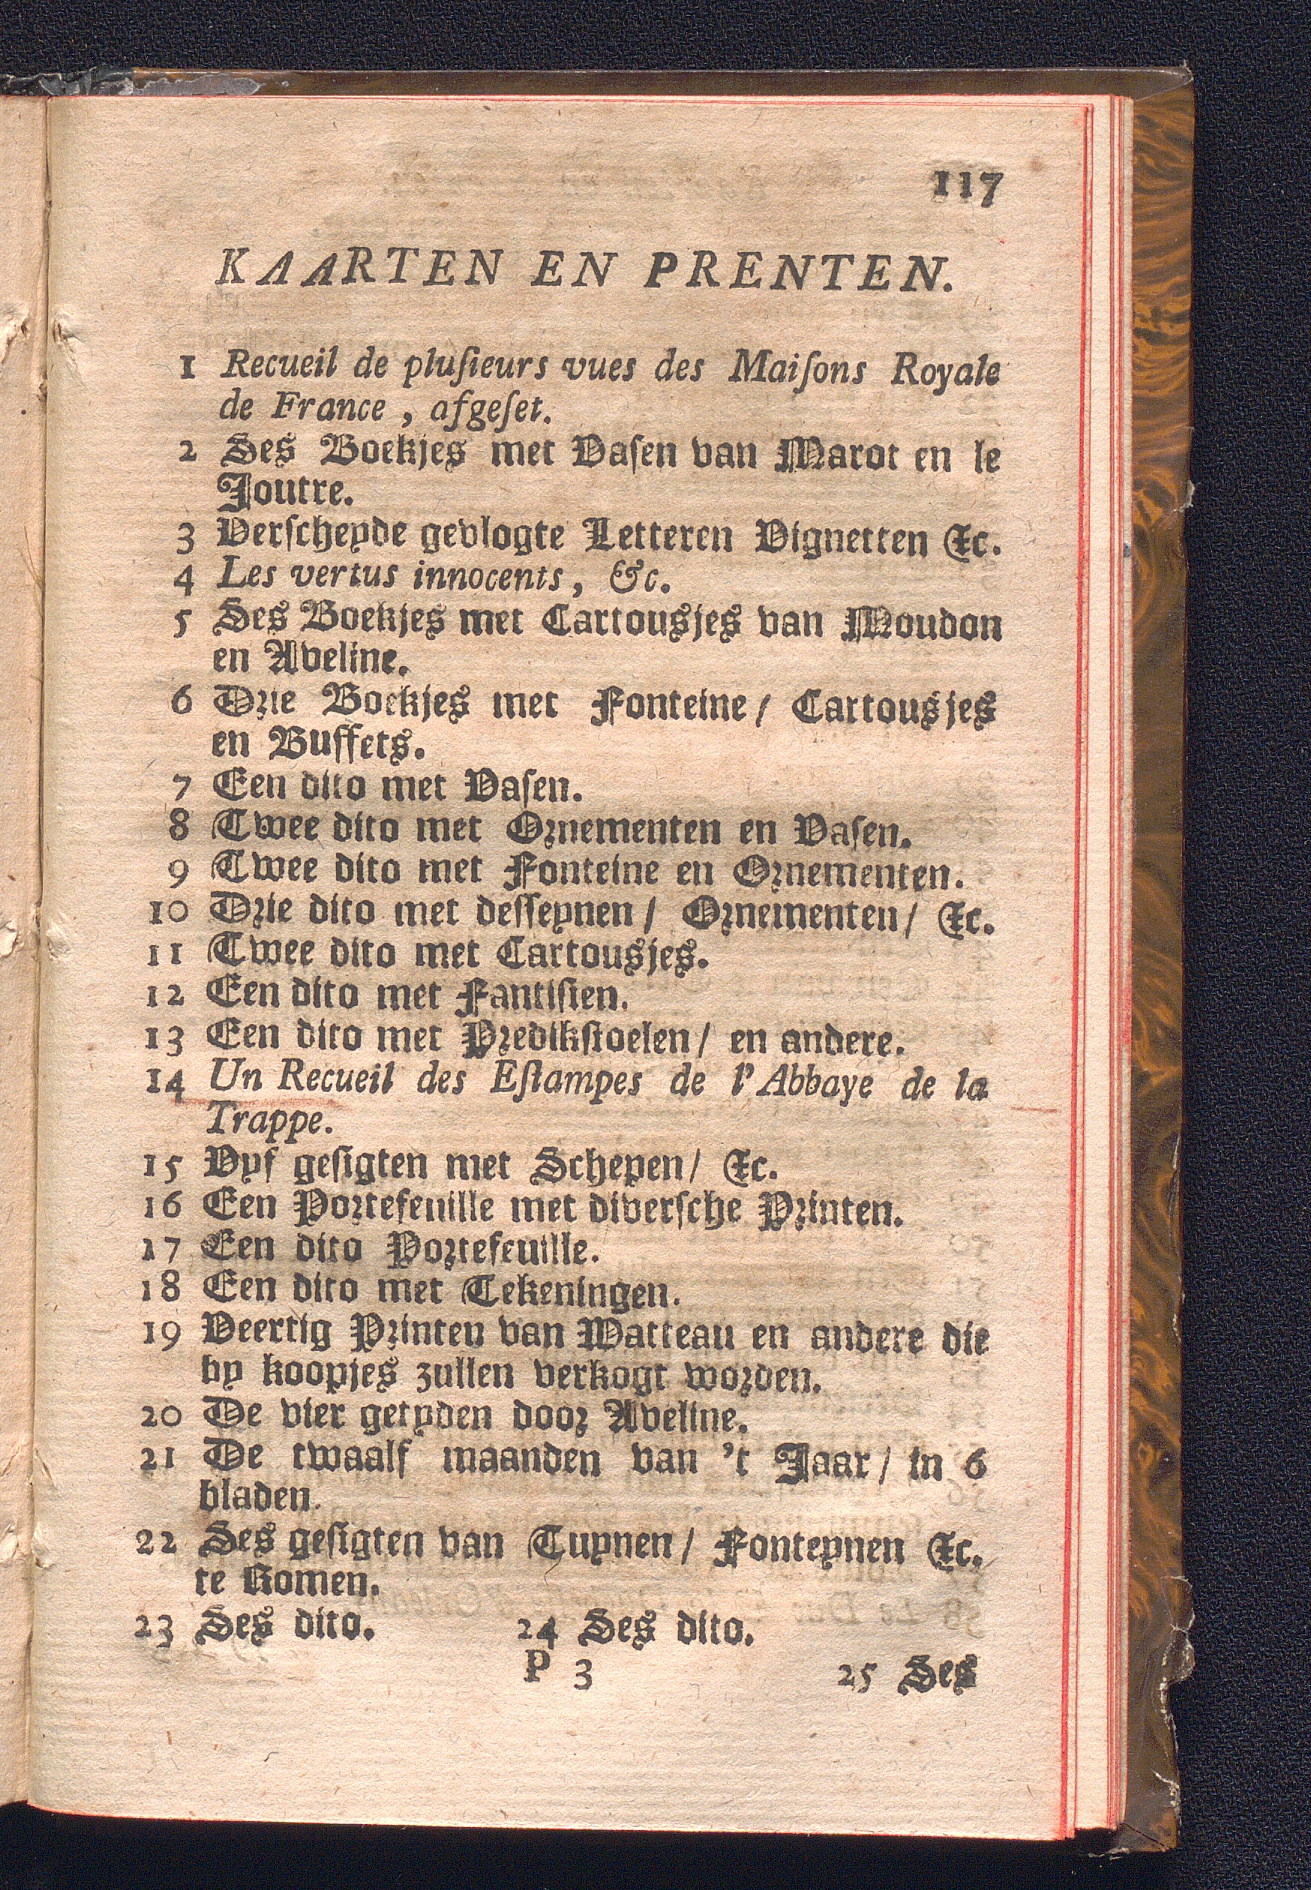 117
KAARTEN EN PRENTEN.
1 Recueil de pluſieurs vues des Maiſons Royale
de France, afgeſet.
2 Ses Boekjes met Vaſen van Marot en le
Joutre.
3 Verſcheyde gevlogte Letteren Vignetten &c.
4 Les vertus innocents, &c.
5 Ses Boekjes met Cartousjes van Moudon
en Aveline.
6 Drie Boekjes met Fonteine / Cartousjes
en Buffets.
7 Een dito met Vaſen.
8 Twee dito met Ornementen en Vaſen.
9 Twee dito met Fonteine en Ornementen.
10 Drie dito met deſſeynen / Ornementen / &c.
11 Twee dito met Cartousjes.
12 Een dito met Fantiſien.
13 Een dito met Predikſtoelen / en andere.
14 Un Recueil des Eſtampes de l'Abbaye de la
Trappe.
15 Vyf geſigten met Schepen / &c.
16 Een Portefeuille met diverſche Printen.
17 Een dito Portefeuille.
18 Een dito met Tekeningen.
19 Veertig Printen van Watteau en andere die
by koopjes zullen verkogt worden.
20 De vier getyden door Aveline.
21 De twaalf maanden van 't Jaar / in 6
bladen.
22 Ses geſigten van Tuynen / Fonteynen &c.
te Romen.
23 Ses dito. 24 Ses dito.
P 3 25 Ses